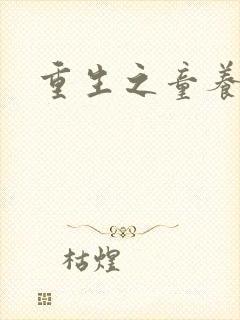 重生之童养
枯煌